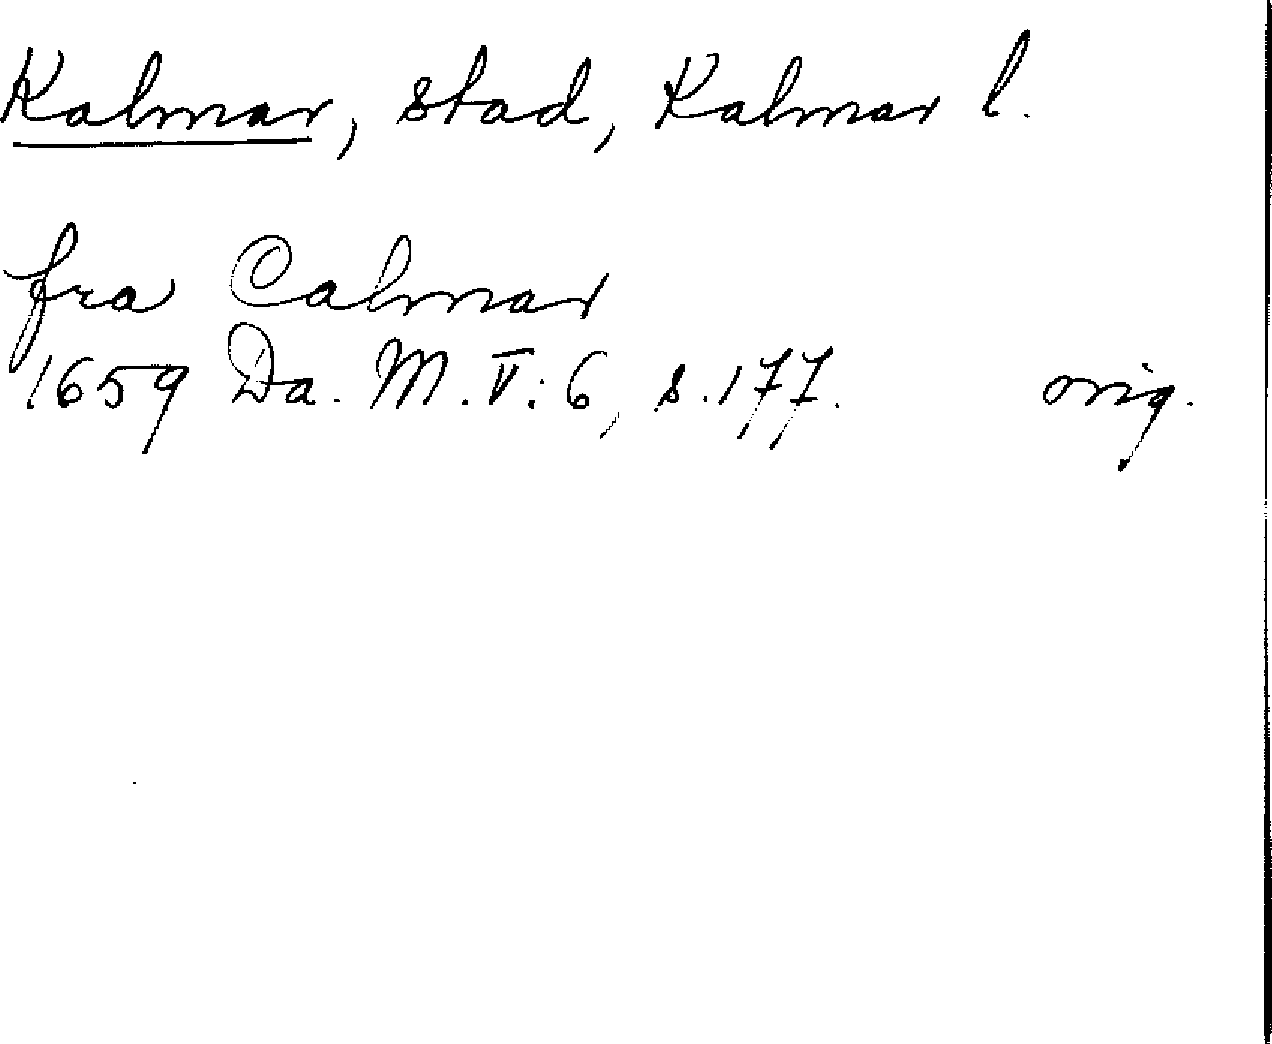 Kalmar, stad, Kalmar l.
fra Calmar
1659 Da. M. V:6, s.177. orig.